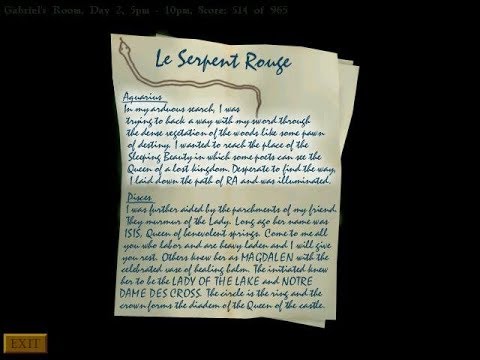 Gabriel's Room, Day 2, 5pm - 10pm, Score: 514 of 965
Le Serpent Rouge
Aquarius
In my arduous search, I was
trying to hack a way with my sword through
the dense vegetation of the woods like some pawn
of destiny. I wanted to reach the place of the
Sleeping Beauty in which some poets can see the
Queen of a lost kingdom. Desperate to find the way,
I laid down the path of RA and was illuminated.
Pisces
I was further aided by the parchments of my friend.
They murmur of the Lady. Long ago her name was
ISIS, Queen of benevolent springs. Come to me all
you who labor and are heavy laden and I will give
you rest. Others knew her as MAGDALEN with the
celebrated vase of healing balm. The initiated knew
her to be the LADY OF THE LAKE and NOTRE
DAME DES CROSS. The circle is the ring and the
crown forms the diadem of the Queen of the castle.
EXIT